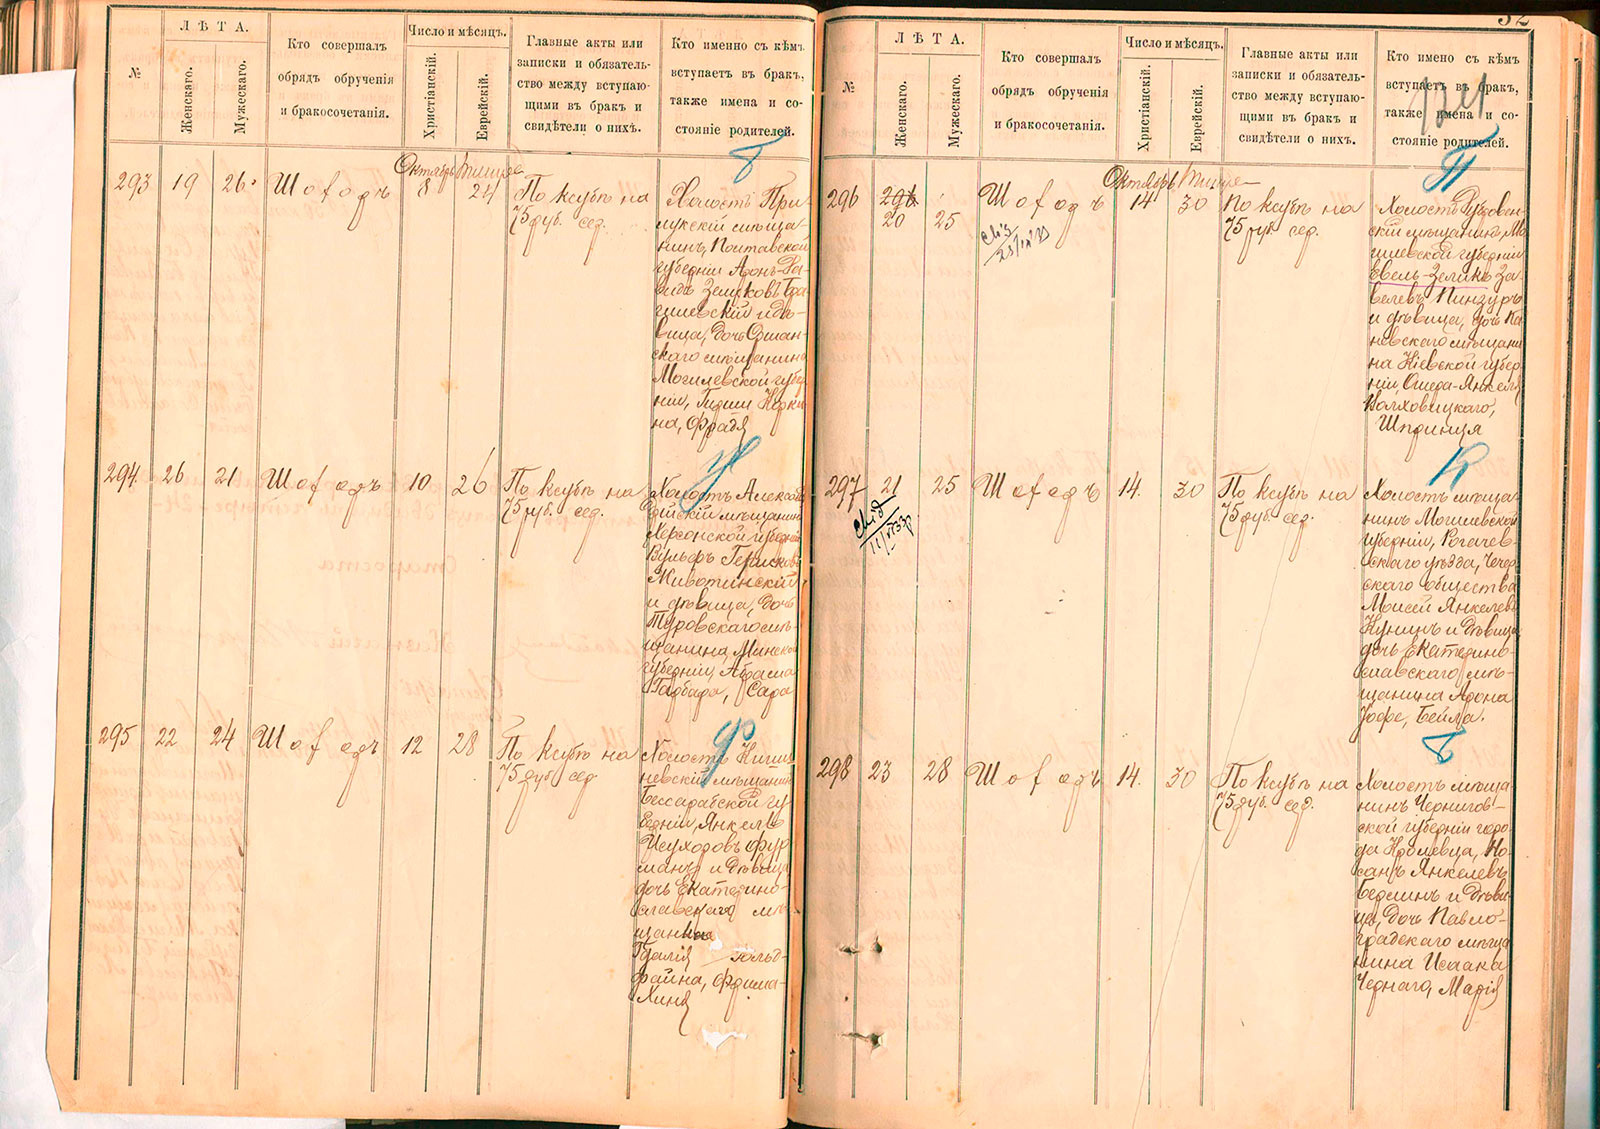 №
ЛѢТА.
Женскаго.
Мужескаго.
Кто совершалъ
обрядъ обрученія
и бракосочетанія.
Число и мѣсяцъ.
Христіанскій.
Еврейскій.
Главные акты или
записки и обязатель-
ство между вступаю-
щими въ бракъ и
свидѣтели о нихъ.
Кто именно съ кѣмъ
вступаетъ въ бракъ,
также имена и со-
стояніе родителей.
Октябрь Тишре
293 19 26 Шофодъ 8 24 По ксубъ на
75 руб. сер.
Холостъ При-
лукскій мѣща-
нинъ, Полтавской
губерніи Аронъ-Да-
видъ Зеликовъ
и дѣ-
вица, дочь Оршан-
скаго мѣщанина
Могилевской губер-
ніи, Гирши
на, Фрадя
294. 26 21 Шофодъ 10 26 По ксубъ на
75 руб. сер.
Холостъ
мѣщанинъ
Херсонской губерніи
Вульфъ
Животинскій
и дѣвица, дочь
Туровскаго мѣ-
щанина, Минской
губерніи, Абрама
Гарбаря, Сара
295 22 24 Шофодъ 12 28 По ксубъ на
75 руб. сер
Холостъ Киши-
невскій мѣщанинъ
Бессарабской гу-
берніи, Янкель
Исухоровъ Фур
манъ и дѣвица
дочь Екатерино-
славскаго мѣ-
щанина
Гдалія Гольд-
файна, Фрима-
Хиня
32
№
ЛѢТА.
Женскаго.
Мужескаго.
Кто совершалъ
обрядъ обрученія
и бракосочетанія.
Число и мѣсяцъ.
Христіанскій.
Еврейскій.
Главные акты или
записки и обязатель-
ство между вступаю-
щими въ бракъ и
свидѣтели о нихъ.
Кто именно съ кѣмъ
вступаетъ въ бракъ,
также имена и со-
стояніе родителей.
П
Октябрь Тишре
296 20 25 Шофодъ 14 30 По ксубъ на
75 руб. сер.
Холостъ
скій мѣщанинъ, Мо
гилевской губерніи
Евель-Зеликъ За
велевъ Пинзуръ
и дѣвица, дочь Ка
невскаго мѣщани
на Кіевской губер
ніи Ошера-Янкеля
Волховицкаго,
Шпринця
К
297 21 25 Шофодъ 14. 30 По ксубъ на
75 руб. сер.
Холостъ мѣща-
нинъ Могилевской
губерніи, Рогачев-
скаго уѣзда, Чечер
скаго общества
Моисей Янкелевъ
Кунинъ и дѣвица
дочь Екатерино-
славскаго мѣ-
щанина Арона
Іофе, Бейла.
Б
298 23 28 Шофодъ 14. 30 По ксубъ на
75 руб. сер.
Холостъ мѣща-
нинъ Чернигов-
ской губерніи горо-
да Кролевца, Но-
санъ Янкелевъ
Берлинъ и дѣви-
ца, дочь Павло-
градскаго мѣща
нина Исаака
Чернаго, Марія